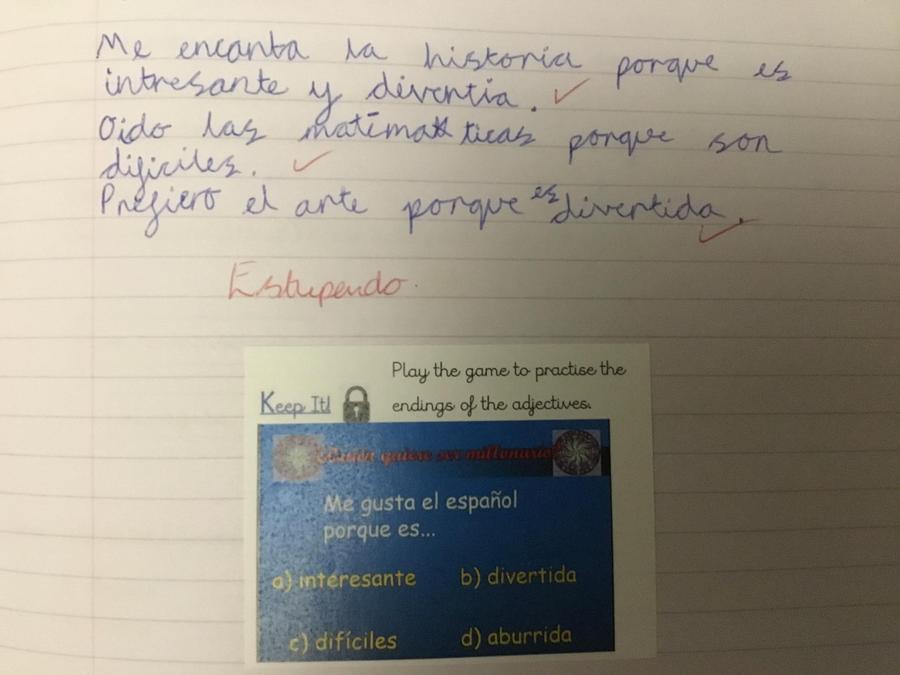 Me encanta la historia porque es
intresante y divertia.
Oido las matimaticas porque son
dificiles.
Prefiero el arte porque es divertida.
Estupendo.
Play the game to practise the
Keep It! endings of the adjectives.
¿Quién quiere ser millonario?
Me gusta el español
porque es...
a) interesante b) divertida
c) difíciles d) aburrida